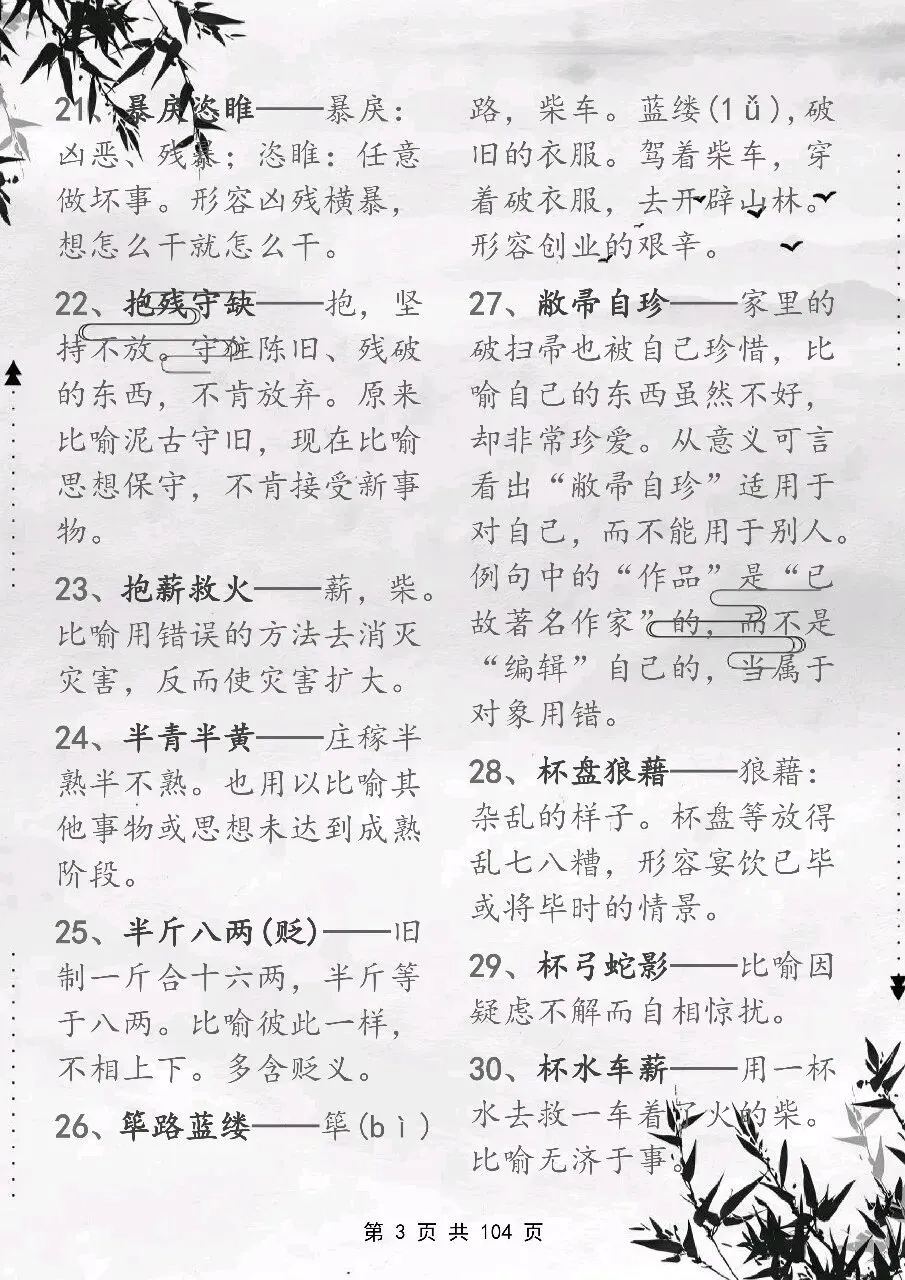 21、暴戾恣睢——暴戾：
凶恶、残暴；恣睢：任意
做坏事。形容凶残横暴，
想怎么干就怎么干。
22、抱残守缺——抱，坚
持不放。守住陈旧、残破
的东西，不肯放弃。原来
比喻泥古守旧，现在比喻
思想保守，不肯接受新事
物。
23、抱薪救火——薪，柴。
比喻用错误的方法去消灭
灾害，反而使灾害扩大。
24、半青半黄——庄稼半
熟半不熟。也用以比喻其
他事物或思想未达到成熟
阶段。
25、半斤八两(贬)——旧
制一斤合十六两，半斤等
于八两。比喻彼此一样，
不相上下。多含贬义。
26、筚路蓝缕——筚(bì)
路，柴车。蓝缕(lǚ),破
旧的衣服。驾着柴车，穿
着破衣服，去开辟山林。
形容创业的艰辛。
27、敝帚自珍——家里的
破扫帚也被自己珍惜，比
喻自己的东西虽然不好，
却非常珍爱。从意义可言
看出“敝帚自珍”适用于
对自己，而不能用于别人。
例句中的“作品”是“已
故著名作家”的，而不是
“编辑”自己的，当属于
对象用错。
28、杯盘狼藉——狼藉：
杂乱的样子。杯盘等放得
乱七八糟，形容宴饮已毕
或将毕时的情景。
29、杯弓蛇影——比喻因
疑虑不解而自相惊扰。
30、杯水车薪——用一杯
水去救一车着了火的柴。
比喻无济于事。
第 3 页 共 104 页